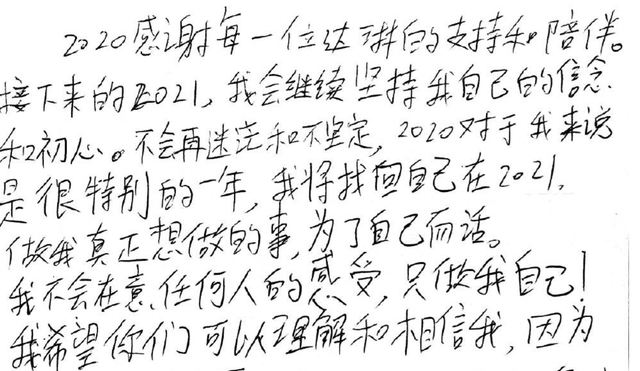 2020感谢每一位达琳的支持和陪伴。
接下来的2021,我会继续坚持我自己的信念
和初心。不会再迷茫和不坚定,2020对于我来说
是很特别的一年,我将找回自己在2021,
做我真正想做的事,为了自己而活。
我不会在意任何人的感受,只做我自己!
我希望你们可以理解和相信我,因为